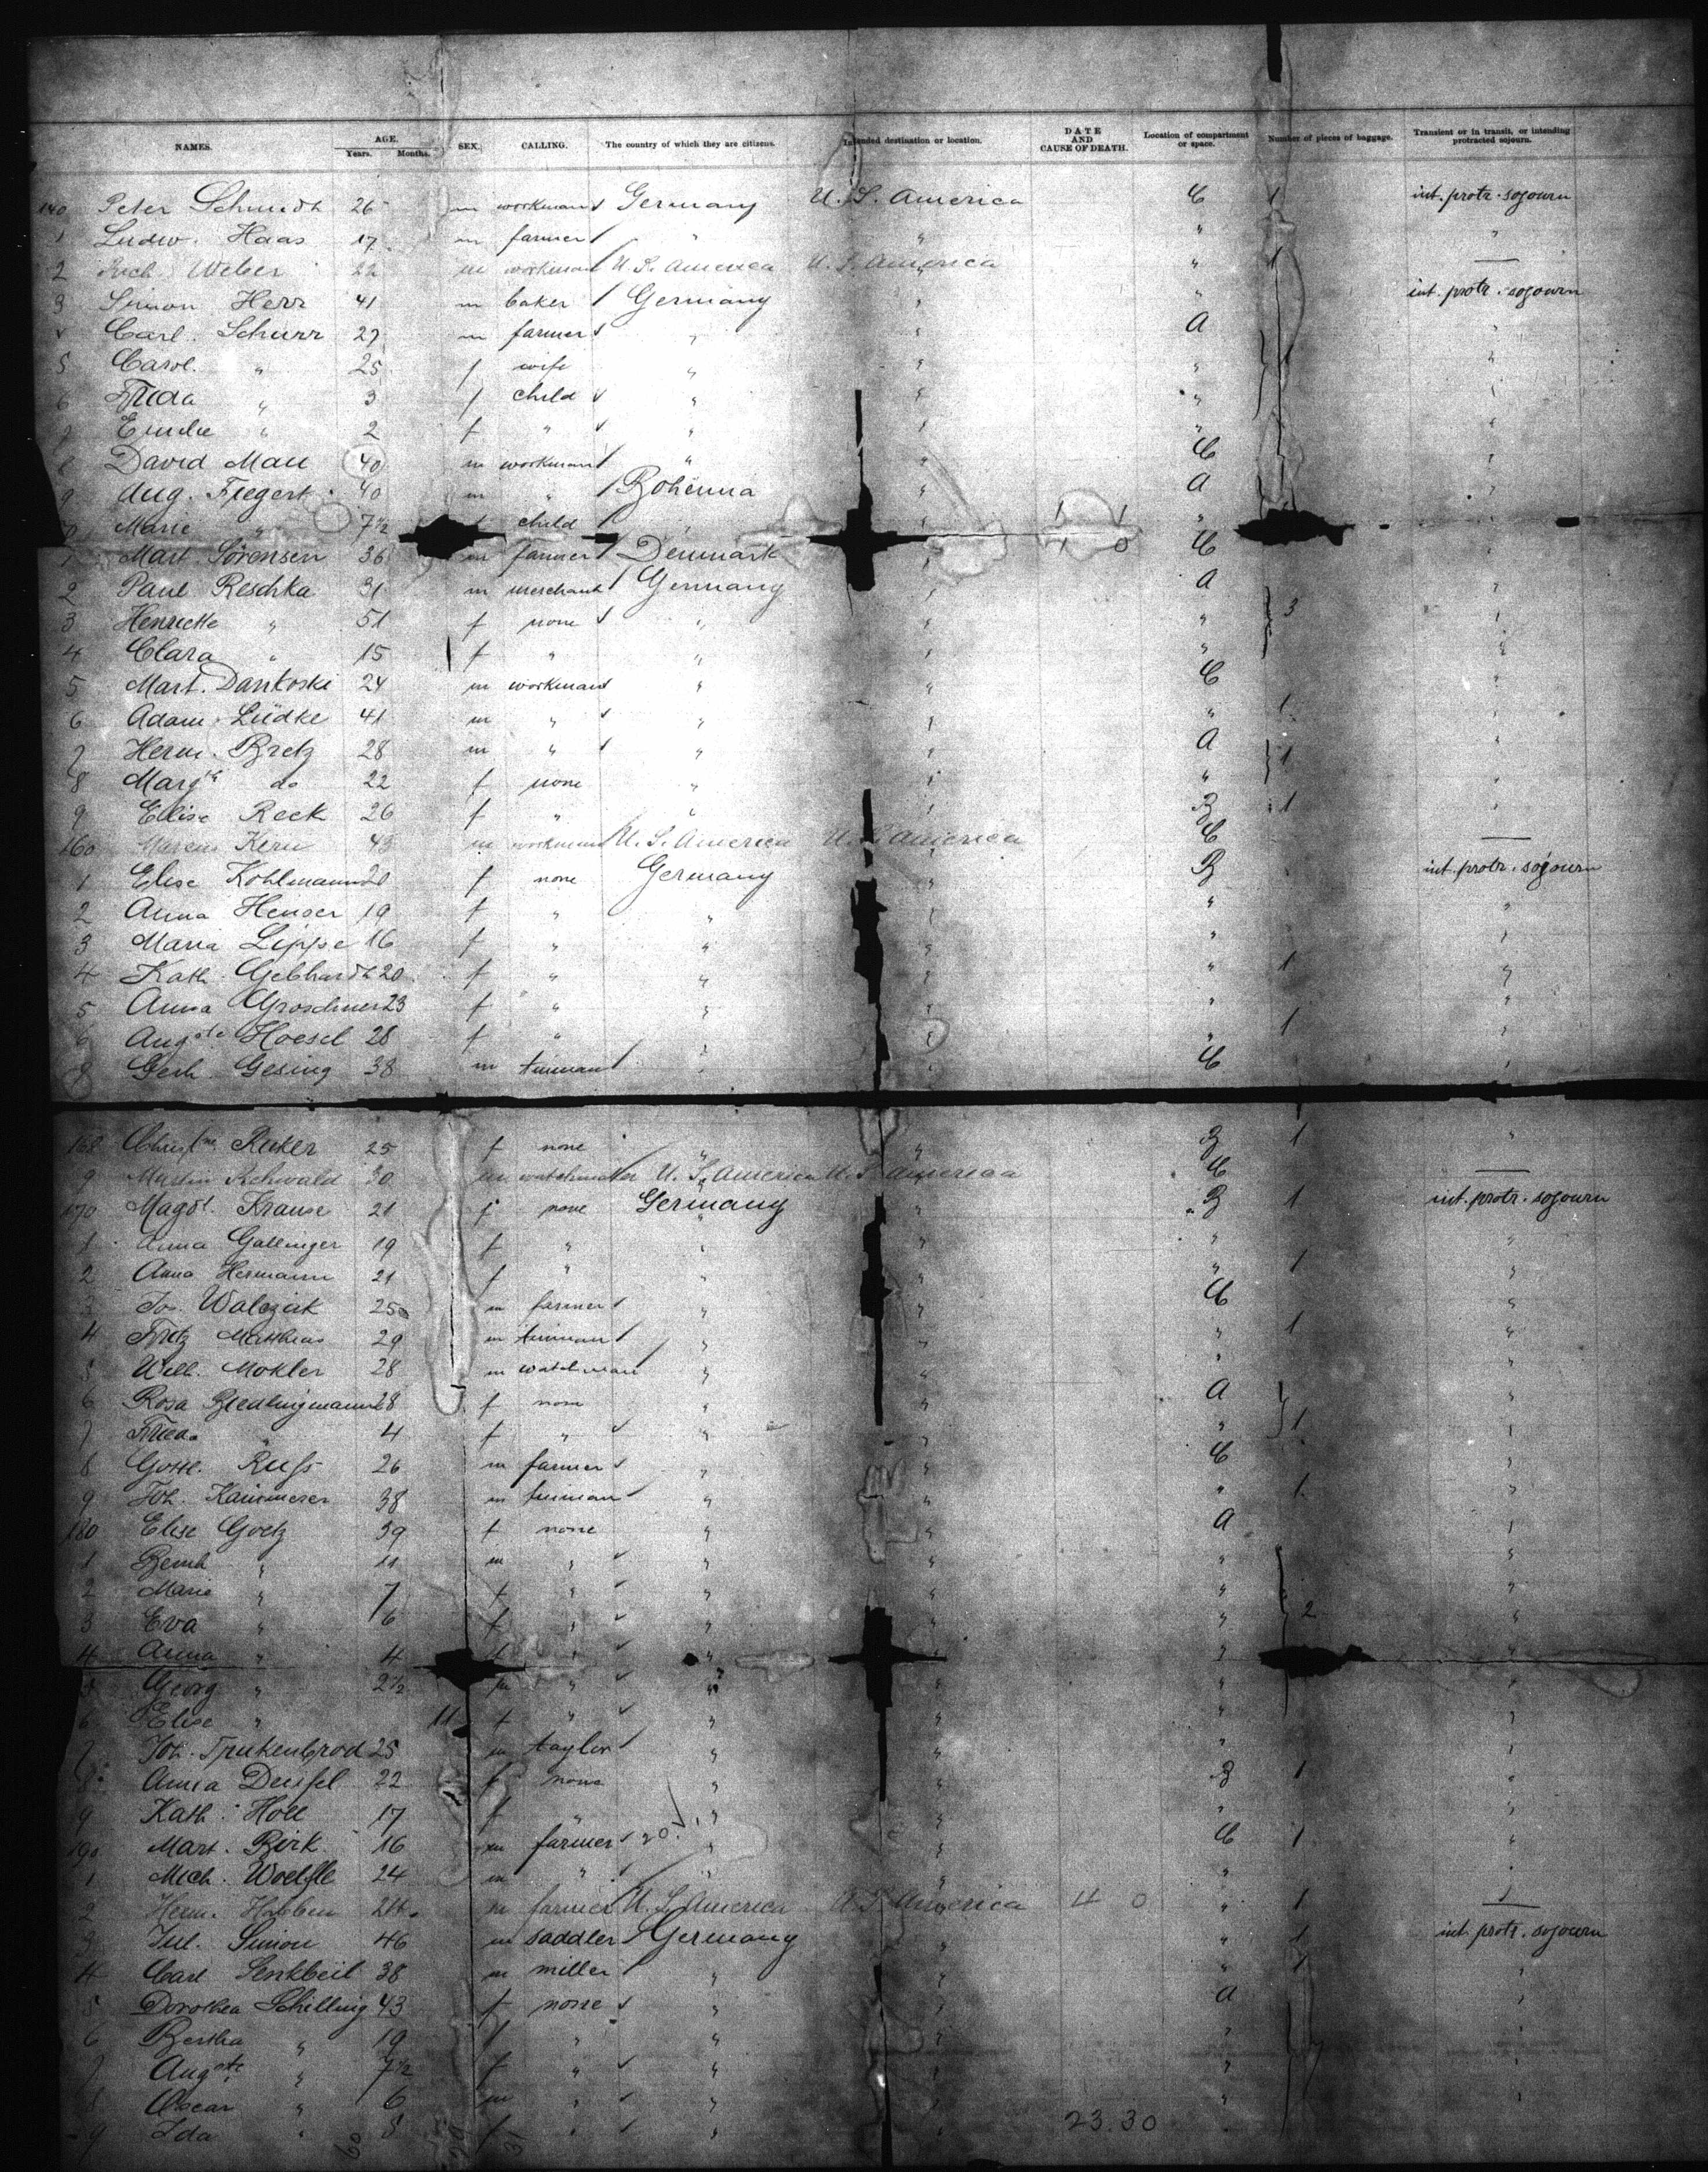 NAMES. AGE. Years. Months. SEX. CALLING. The country of which they are citizens. Intended destination or location. DATE AND CAUSE OF DEATH. Location of compartment or space. Number of pieces of baggage. Transient or in transit, or intending protracted sojourn.
140 Peter Schmidt 26 m workman Germany U. S. America C 1 int. protr. sojourn
1 Ludw. Haas 17 m farmer " " " "
2 Weber 22 m workman U. S. America U. S. America " 1 —
3 Simon Herr 41 m baker Germany " " int. protr. sojourn
Carl Schurr 27 m farmer " " A "
5 Carol. " 25 f wife " " " 1 "
6 Frida " 3 f child " " " "
7 Emilie " 2 f " " " " "
8 David Mall 40 m workman " " C "
9 Aug. Fiegert 40 m " Bohemia " A "
Marie " 7½ child " " " "
1 Mart. Sörensen 36 m farmer Denmark " C "
2 Paul Reschka 31 m merchant Germany " A "
3 Henriette " 51 f none " " " 3 "
4 Clara " 15 f " " " " "
5 Mart. Dankoski 24 m workman " " C "
6 Adam Lüdke 41 m " " " " 1 "
7 Herm. Bretz 28 m " " " A 1 "
8 Marg. do 22 f none " " " "
9 Elise Reck 26 f " " " B 1 "
160 Marcus Kern 43 m workman U. S. America U. S. America C —
1 Elise Kohlmann 20 f none Germany " B int. protr. sojourn
2 Anna Henser 19 f " " " " "
3 Maria Lippe 16 f " " " " "
4 Kath. Gebhardt 20 f " " " " 1 "
5 Anna Groschner 23 f " " " " "
6 Aug.ste Hoesel 28 f " " " " 1 "
Gerh. Gesing 38 m tinman " " C "
168 Christ.ne Rieker 25 f none " " B 1 "
9 Martin Rehwald 30 m U. S. America U. S. America C —
170 Magd. Krause 21 f none Germany " B 1 int. protr. sojourn
1 Anna Gallinger 19 f " " " " "
2 Anna Hermann 21 f " " " " 1 "
3 Jos. Walczak 25 m farmer " " C "
4 Fritz Matthias 29 m tinman " " " 1 "
5 Wilh. Mokler 28 m watchman " " " "
6 Rosa Riedlingmann 28 f none " " A "
7 Frieda " 4 f " " " " 1 "
8 Gottl. Rufs 26 m farmer " " C "
9 Joh. Kammerer 38 m tinman " " " 1 "
180 Elise Goetz 39 f none " " A "
1 Bernh. " 11 m " " " " "
2 Marie " 7 f " " " " "
3 Eva " 6 f " " " " 2 "
4 Anna " 4 f " " " " "
5 Georg " 2½ m " " " " "
6 Elise " 11 f " " " " "
7 Joh. Trukenbrod 25 m taylor " " " "
8 Anna Deissel 22 f none " " B 1 "
9 Kath. Holl 17 f " " " " "
190 Mart. Birk 16 m farmer 20 " " C 1 "
1 Mich. Woelfle 24 m " " " " "
2 Herm. Habben 24 m farmer U. S. America U. S. America 4 0 " 1 —
3 Jul. Simon 46 m saddler Germany " " 1 int. protr. sojourn
4 Carl Senkbeil 38 m miller " " " 1 "
5 Dorothea Schilling 43 f none " " A "
6 Bertha " 19 f " " " " "
7 Aug.ste " 7½ f " " " "
8 Oscar " 6 m " " " " "
9 Ida " 5 f " " "
23.30